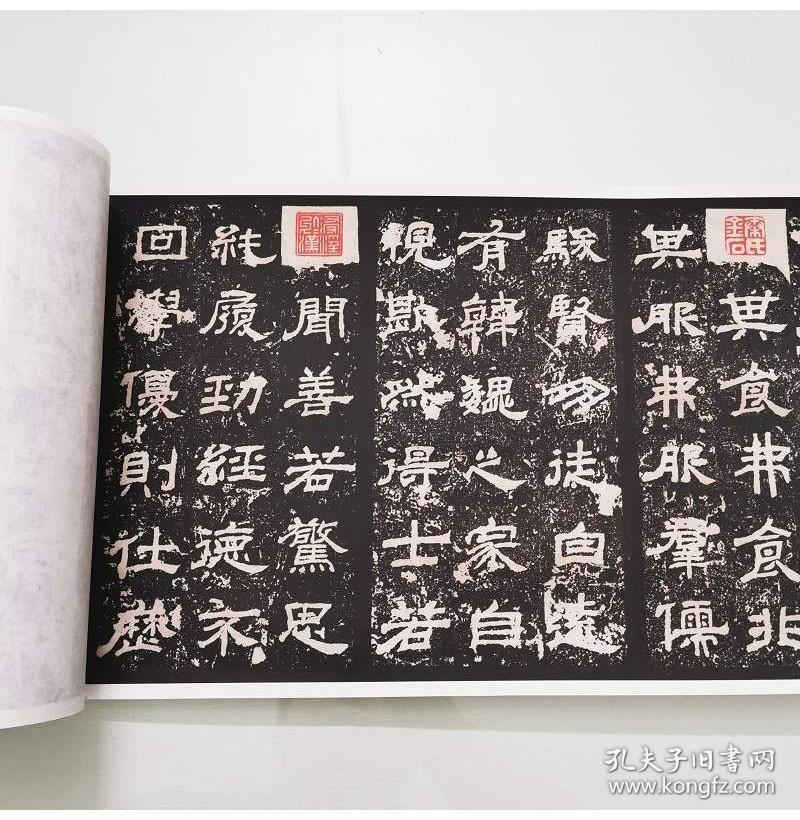 其食弗食非
其服弗服羣儒
駿賢朋徒自遠
有韓魏之家自
視歉然得士若
聞善若驚思
純履勁經德不
回學優則仕歷
孔夫子旧书网
www.kongfz.com